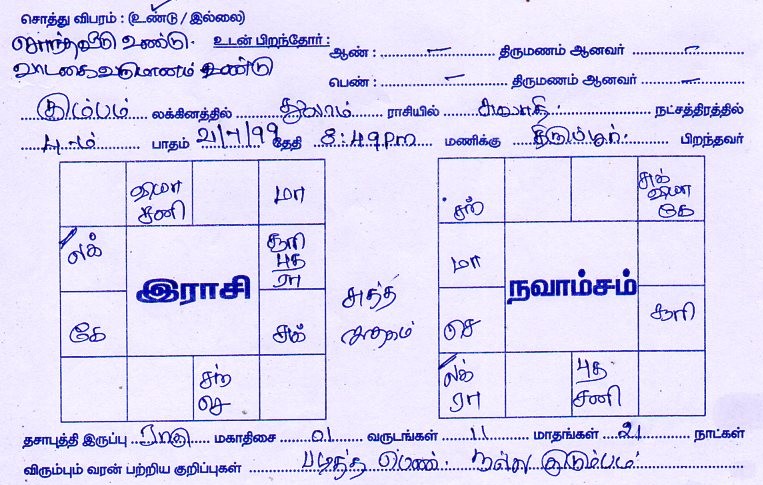 சொத்து விபரம் : (உண்டு / இல்லை)
சொந்தவீடு உண்டு. உடன் பிறந்தோர் : ஆண் : – திருமணம் ஆனவர் –
வாடகை வருமானம் உண்டு
பெண் : – திருமணம் ஆனவர் –
கும்பம் லக்கினத்தில் துலாம் ராசியில் சுவாதி நட்சத்திரத்தில்
4-ம் பாதம் 2/7/99 தேதி 8:49 PM மணிக்கு திருப்பூர். பிறந்தவர்
குரு சனி மா
லக் சூரி புத ரா
இராசி
கே சுக்
சந் செ
சுத்த
சந் சுக் குரு கே
மா
நவாம்சம்
செ சூரி
லக் ரா புத சனி
தசாபுத்தி இருப்பு ராகு மகாதிசை 01 வருடங்கள் 11 மாதங்கள் 21 நாட்கள்
விரும்பும் வரன் பற்றிய குறிப்புகள் படித்த பெண். நல்ல குடும்பம்